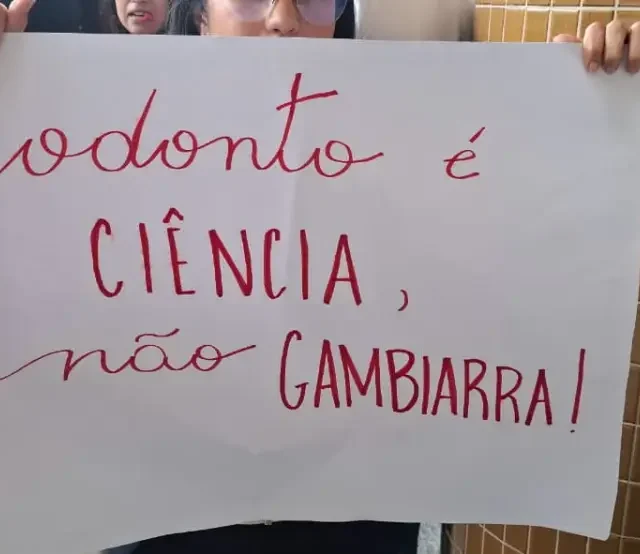 odonto é
CIÊNCIA,
não GAMBIARRA!